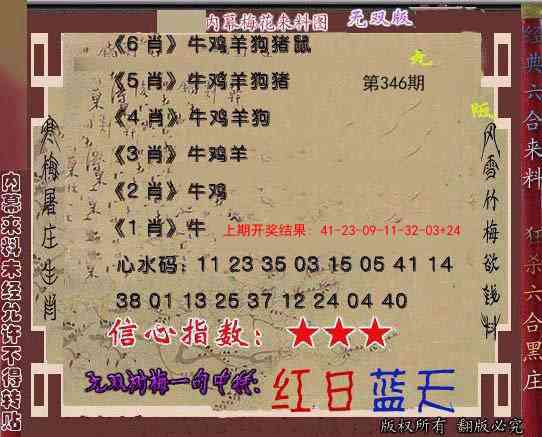 内幕梅花来料图 无双版
《6 肖》牛鸡羊狗猪鼠
《5 肖》牛鸡羊狗猪
第346期
《4 肖》牛鸡羊狗
《3 肖》牛鸡羊
《2 肖》牛鸡
《1 肖》牛
上期开奖结果：41-23-09-11-32-03+24
心水码：11 23 35 03 15 05 41 14
38 01 13 25 37 12 24 04 40
信心指数：★★★
红日 蓝天
版权所有 翻版必究
寒梅屠庄生肖
风雪竹梅欲钱料
内幕来料未经允许不得转贴
经典六合来料 狂杀六合黑庄